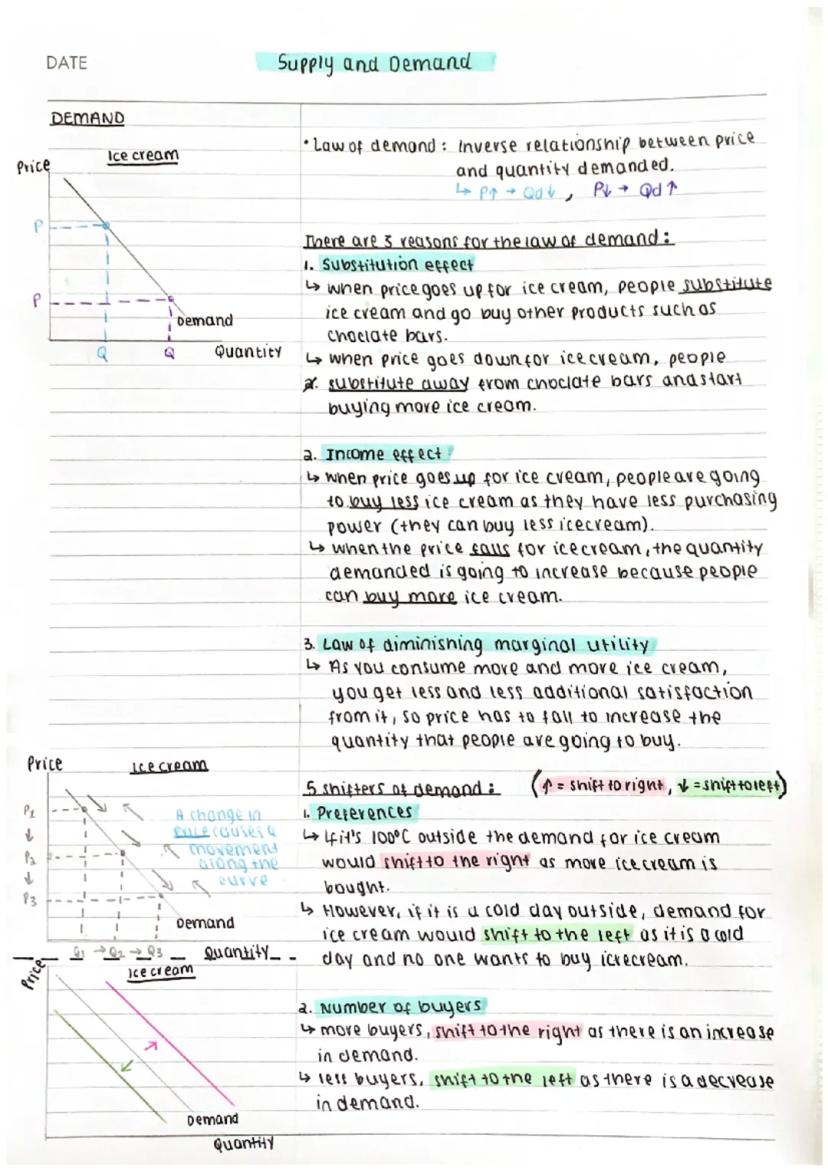 DATE
Supply and Demand
DEMAND
Price
Ice cream
P
P
Demand
Q
Q
Quantity
• Law of demand : Inverse relationship between price
and quantity demanded.
↳ P↑ → Qd↓ , P↓ → Qd↑
There are 3 reasons for the law of demand :
1. Substitution effect
↳ when price goes up for ice cream, people substitute
ice cream and go buy other products such as
choclate bars.
↳ when price goes down for ice cream, people
substitute away from choclate bars and start
buying more ice cream.
2. Income effect
↳ when price goes up for ice cream, people are going
to buy less ice cream as they have less purchasing
power (they can buy less icecream).
↳ when the price falls for icecream, the quantity
demanded is going to increase because people
can buy more ice cream.
3. Law of diminishing marginal utility
↳ As you consume more and more ice cream,
you get less and less additional satisfaction
from it, so price has to fall to increase the
quantity that people are going to buy.
Price
Ice cream
P1
↓
P2
↓
P3
A change in
price causes a
movement
along the
curve
Demand
Q1 → Q2 → Q3
Quantity
5 shifters of demand : (↑ = shift to right, ↓ = shift to left)
1. Preferences
↳ If it's 100°C outside the demand for ice cream
would shift to the right as more ice cream is
bought.
↳ However, if it is a cold day outside, demand for
ice cream would shift to the left as it is a cold
day and no one wants to buy icrecream.
Price
Ice cream
Demand
Quantity
2. Number of buyers
↳ more buyers, shift to the right as there is an increase
in demand.
↳ less buyers, shift to the left as there is a decrease
in demand.